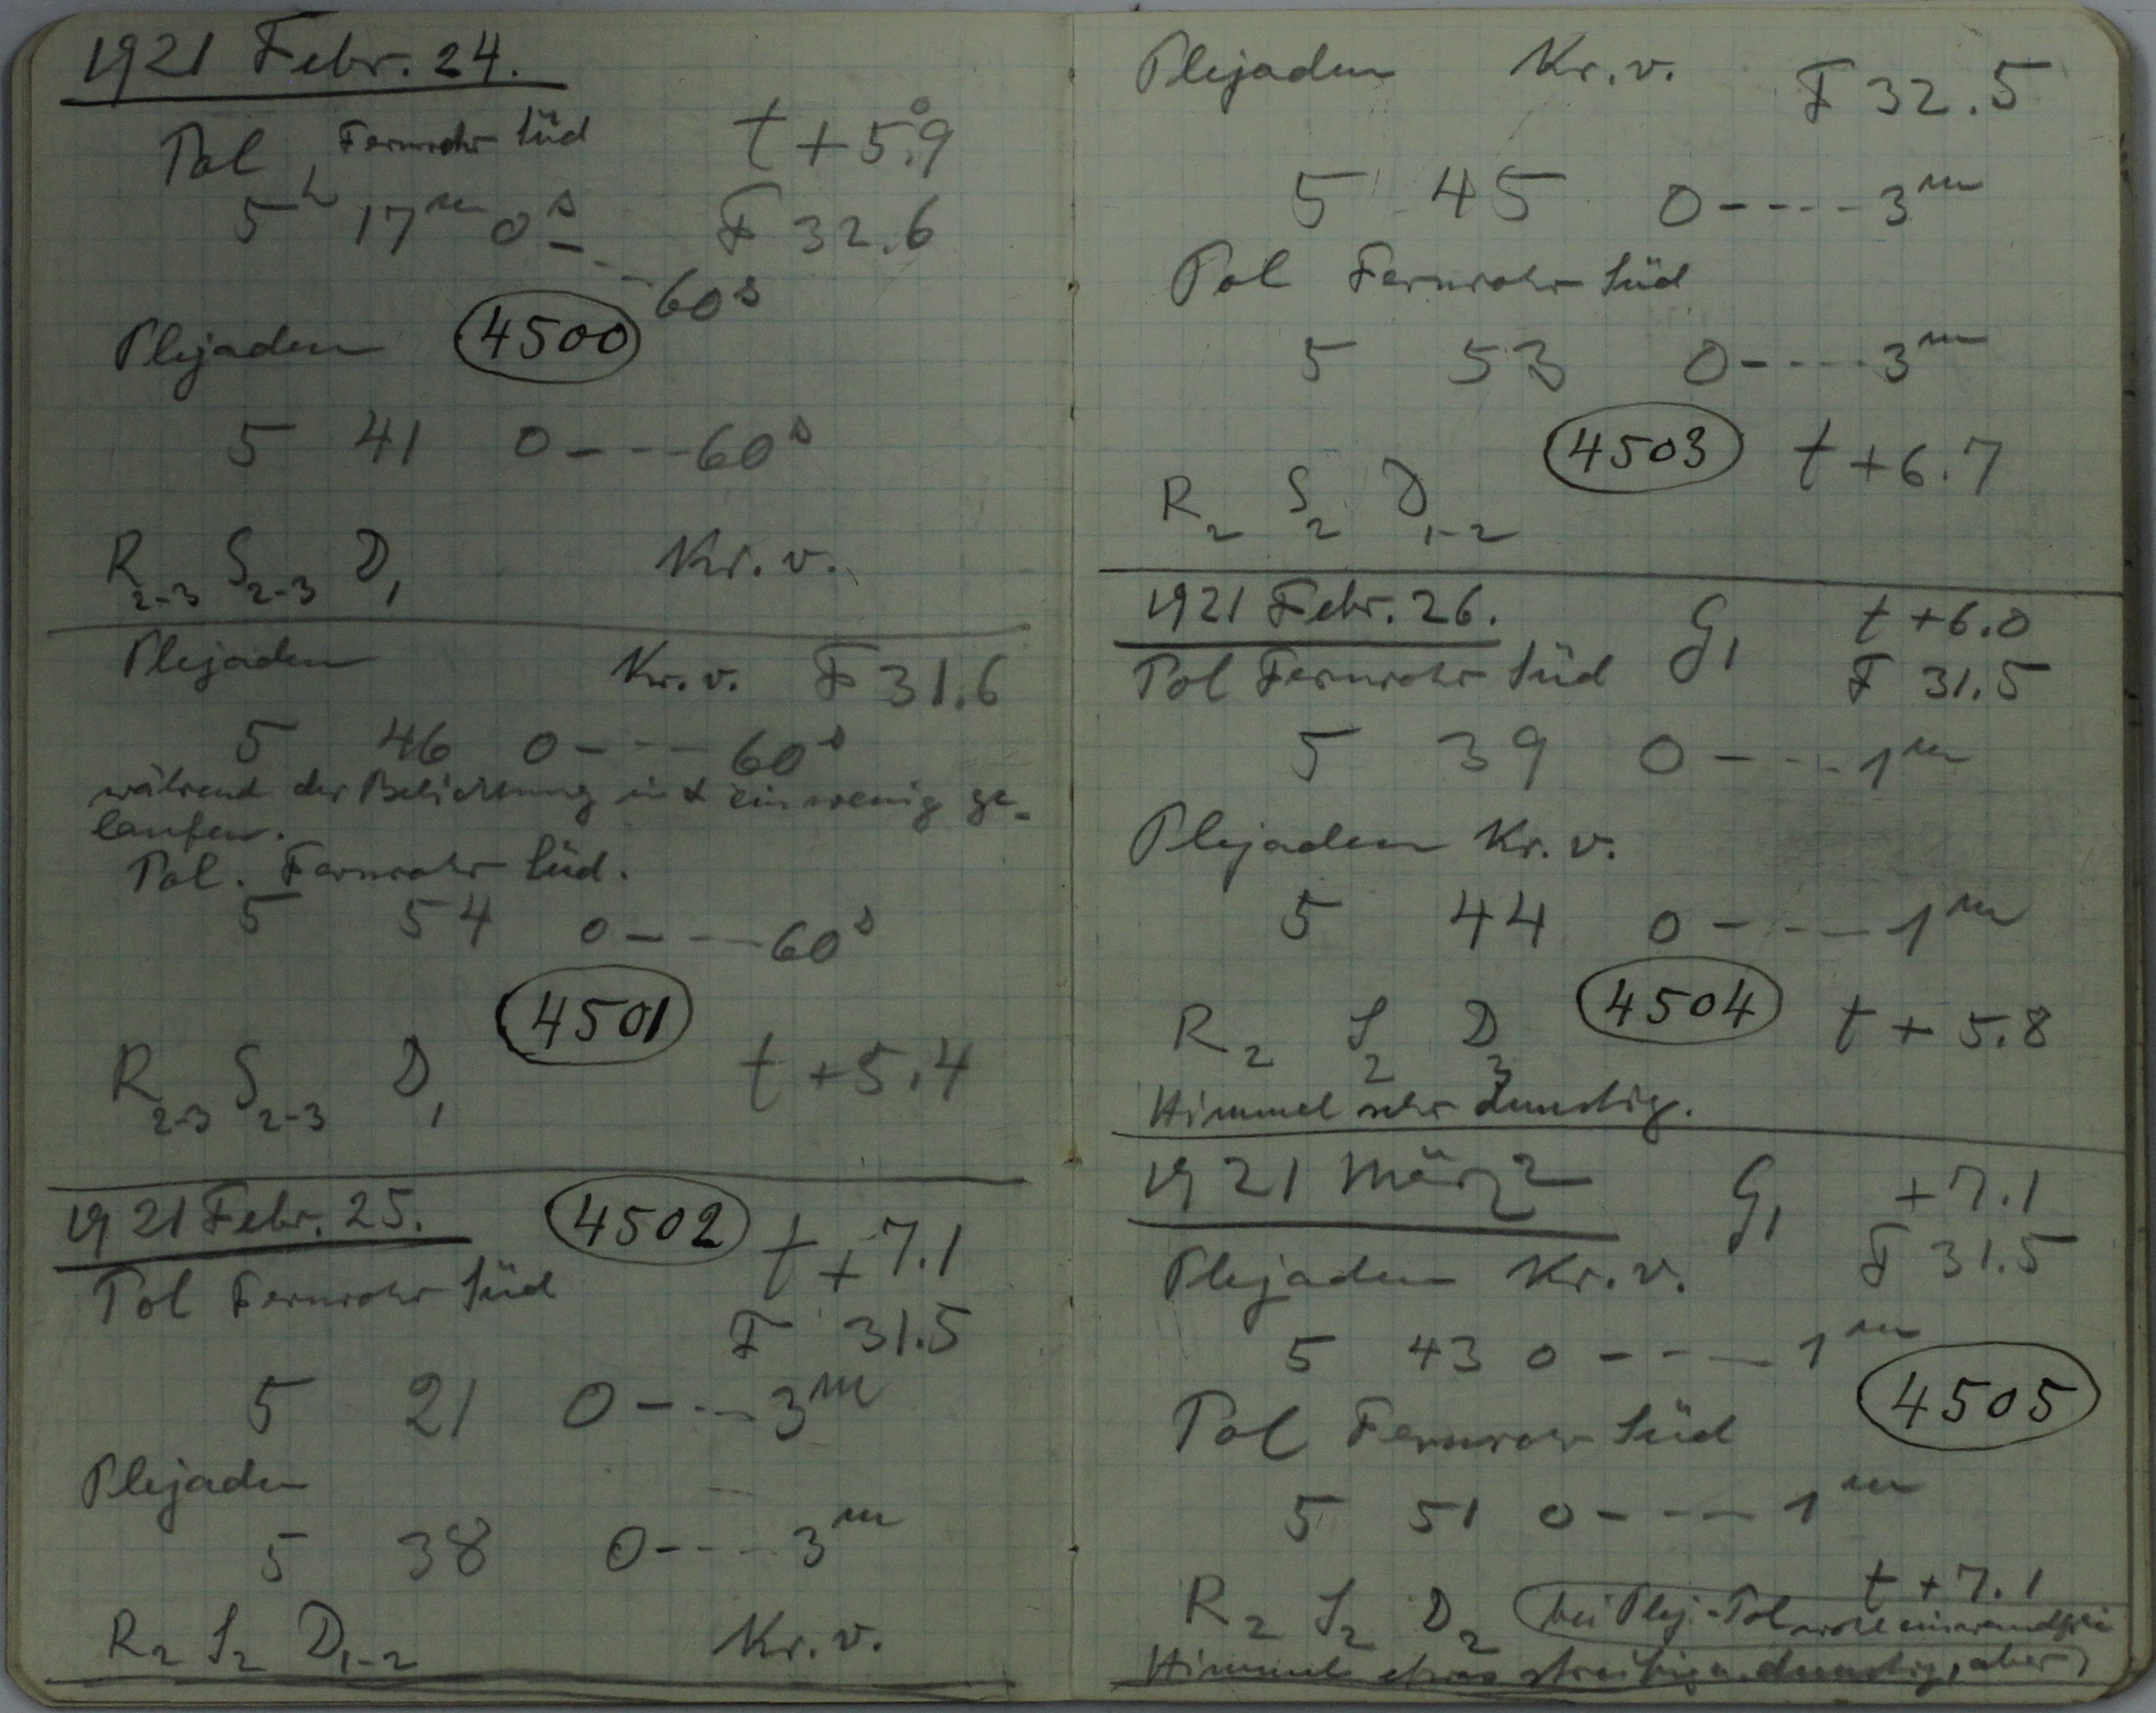 1921 Febr. 24.
Pol, Fernrohr Süd t + 5.°9
5h 17m 0s - - - 60s F 32.6
Plejaden 4500
5 41 0 - - - 60s
R2-3 S2-3 D1 Kr. v.
Plejaden Kr. v. F 31.6
5 46 0 - - - 60s
während der Belichtung in α ein wenig ge-
laufen.
Pol. Fernrohr Süd.
5 54 0 - - - 60s
4501
R2-3 S2-3 D1 t + 5.4
1921 Febr. 25. 4502 t + 7.1
Pol Fernrohr Süd
F 31.5
5 21 0 - - - 3m
Plejaden
5 38 0 - - - 3m
R2 S2 D1-2 Kr. v.
Plejaden Kr. v. F 32.5
5 45 0 - - - - 3m
Pol Fernrohr Süd
5 53 0 - - - - 3m
4503 t + 6.7
R2 S2 D1-2
1921 Febr. 26. G1 t + 6.0
Pol Fernrohr Süd F 31.5
5 39 0 - - - 1m
Plejaden Kr. v.
5 44 0 - - - 1m
R2 S2 D3 4504 t + 5.8
Himmel sehr dunstig.
1921 März 2 G1 + 7.1
Plejaden Kr. v. F 31.5
5 43 0 - - - - 1m
4505
Pol Fernrohr Süd
5 51 0 - - - - 1m
t + 7.1
R2 S2 D2 bei Plej. - Pol wohl einwandfrei
Himmel etwas streifig u. dunstig, aber